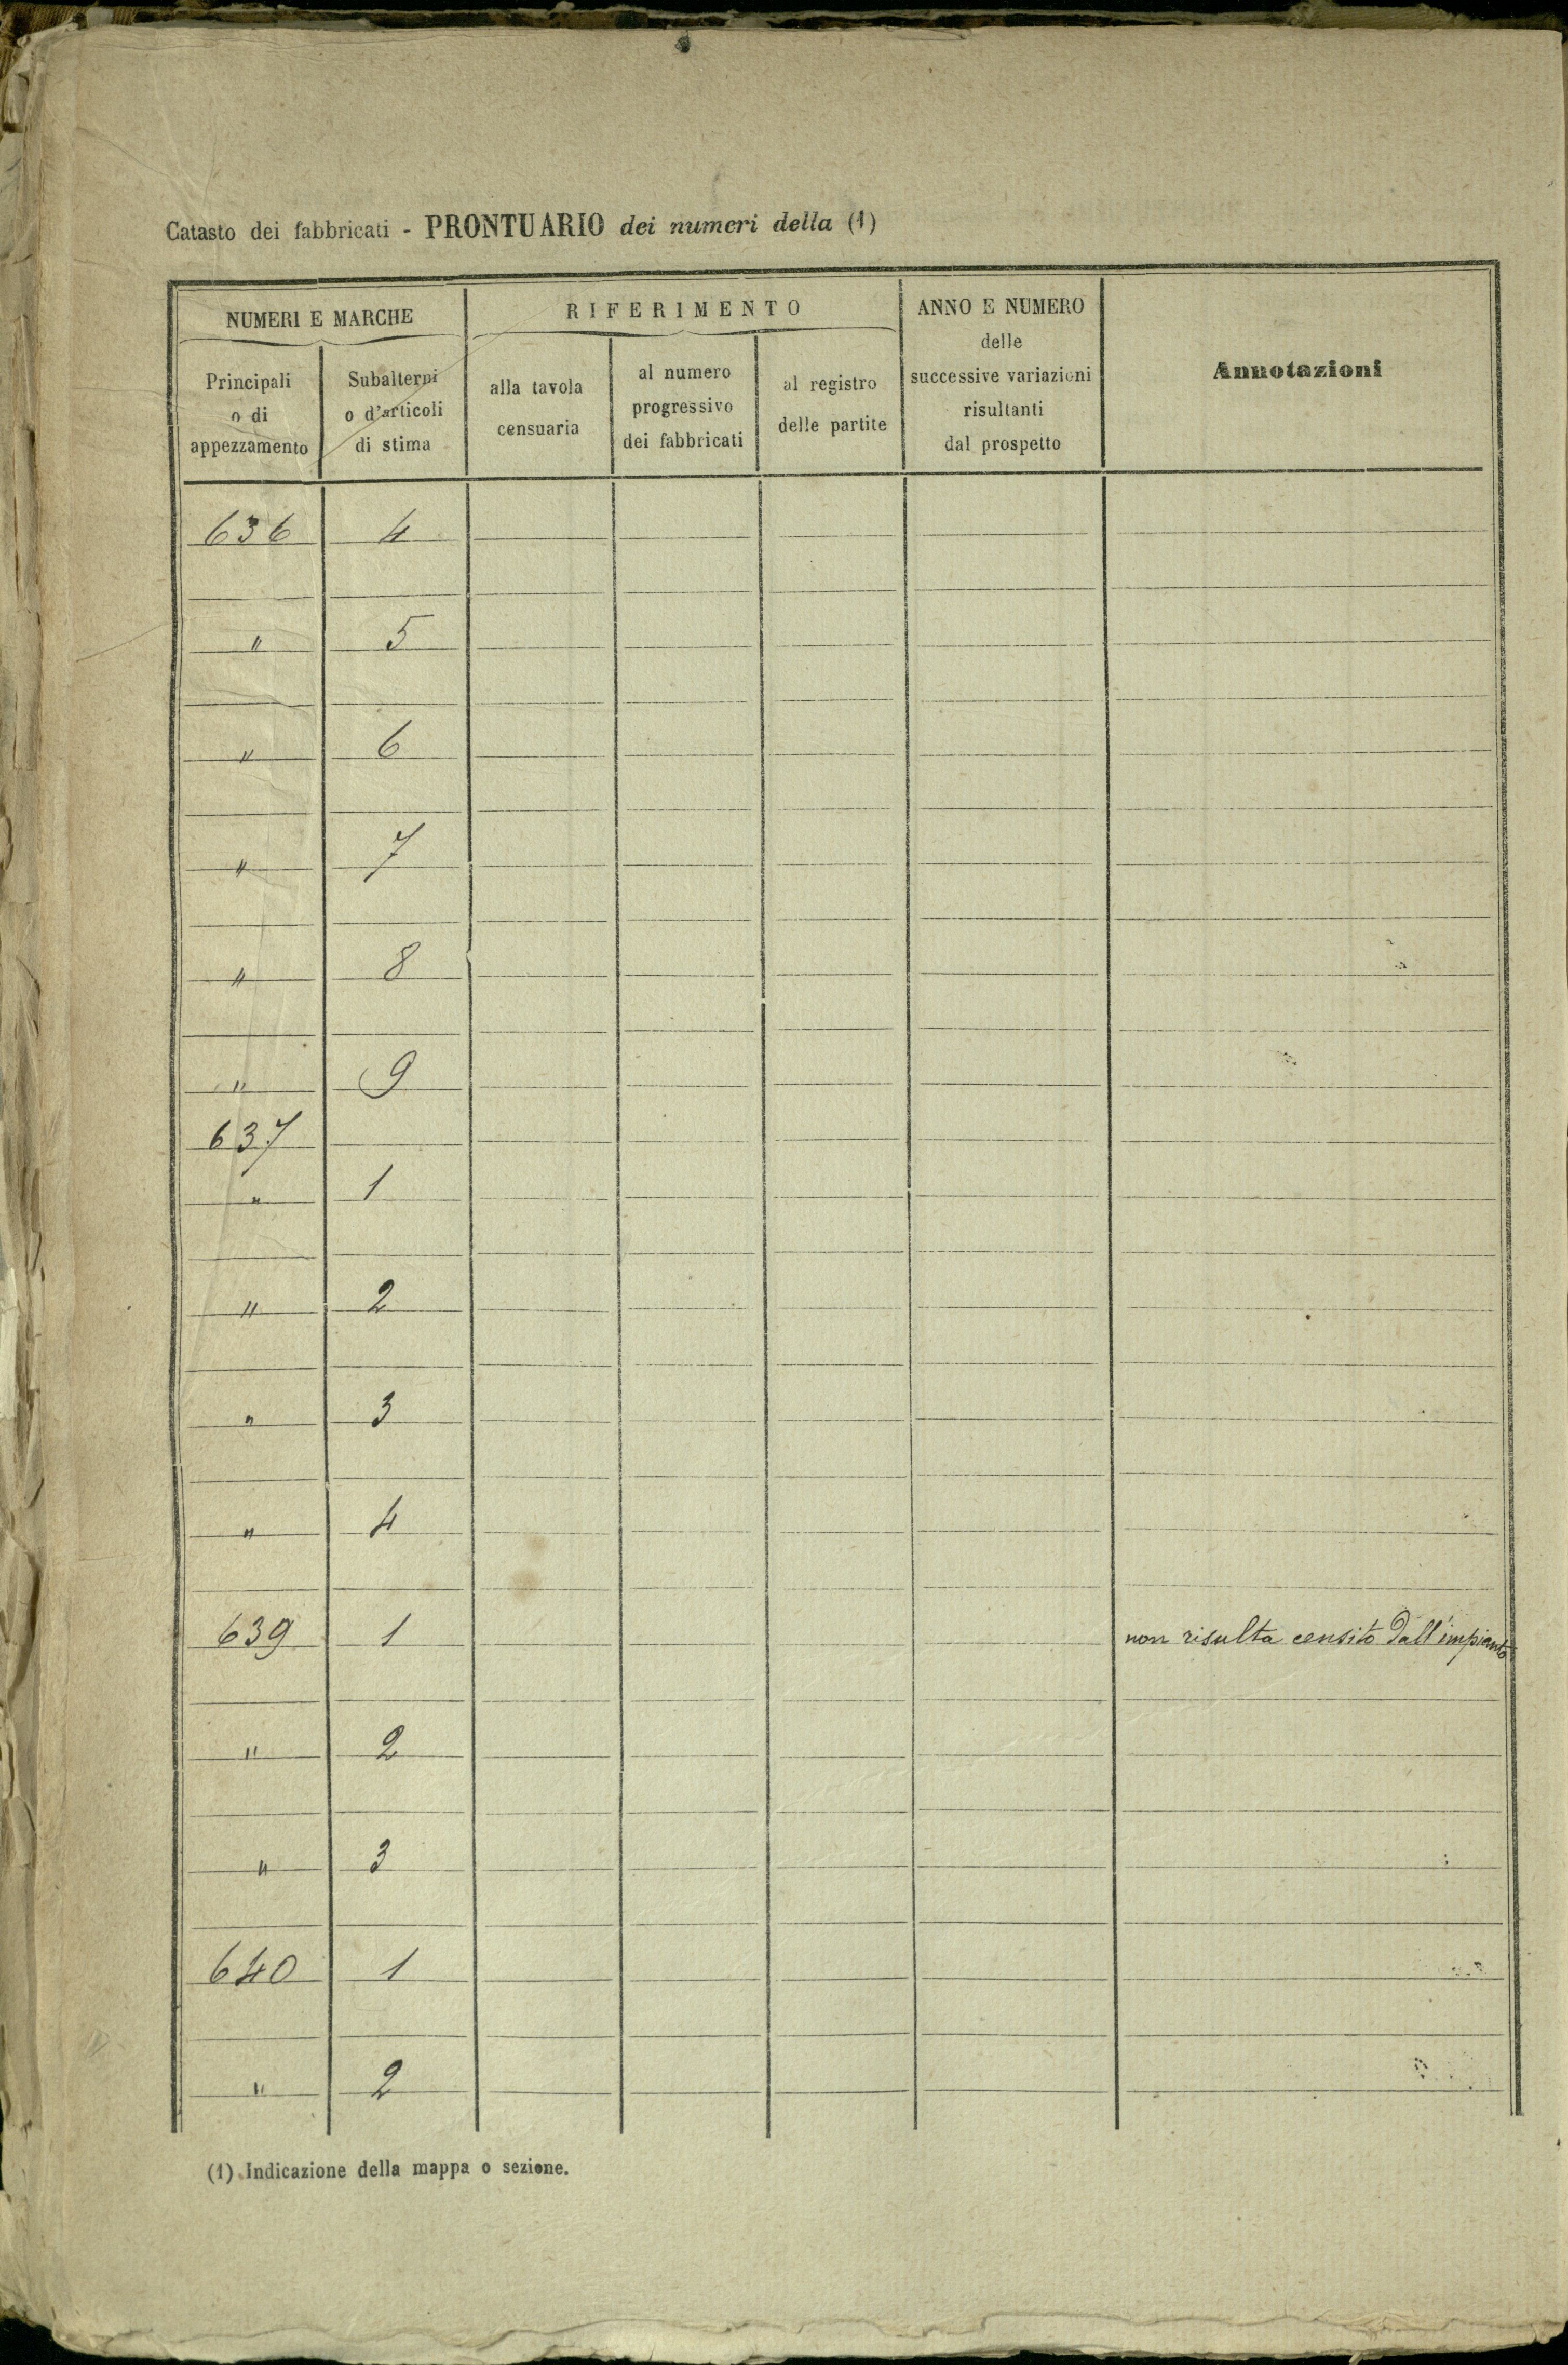 Catasto dei fabbricati - PRONTUARIO dei numeri della (1)
NUMERI E MARCHE
Principali
o di
appezzamento
Subalterni
o d'articoli
di stima
RIFERIMENTO
alla tavola
censuaria
al numero
progressivo
dei fabbricati
al registro
delle partite
ANNO E NUMERO
delle
successive variazioni
risultanti
dal prospetto
Annotazioni
636 4
" 5
" 6
" 7
" 8
" 9
637
" 1
" 2
" 3
" 4
639 1 non risulta censito dall'impianto
" 2
" 3
640 1
" 2
(1) Indicazione della mappa o sezione.